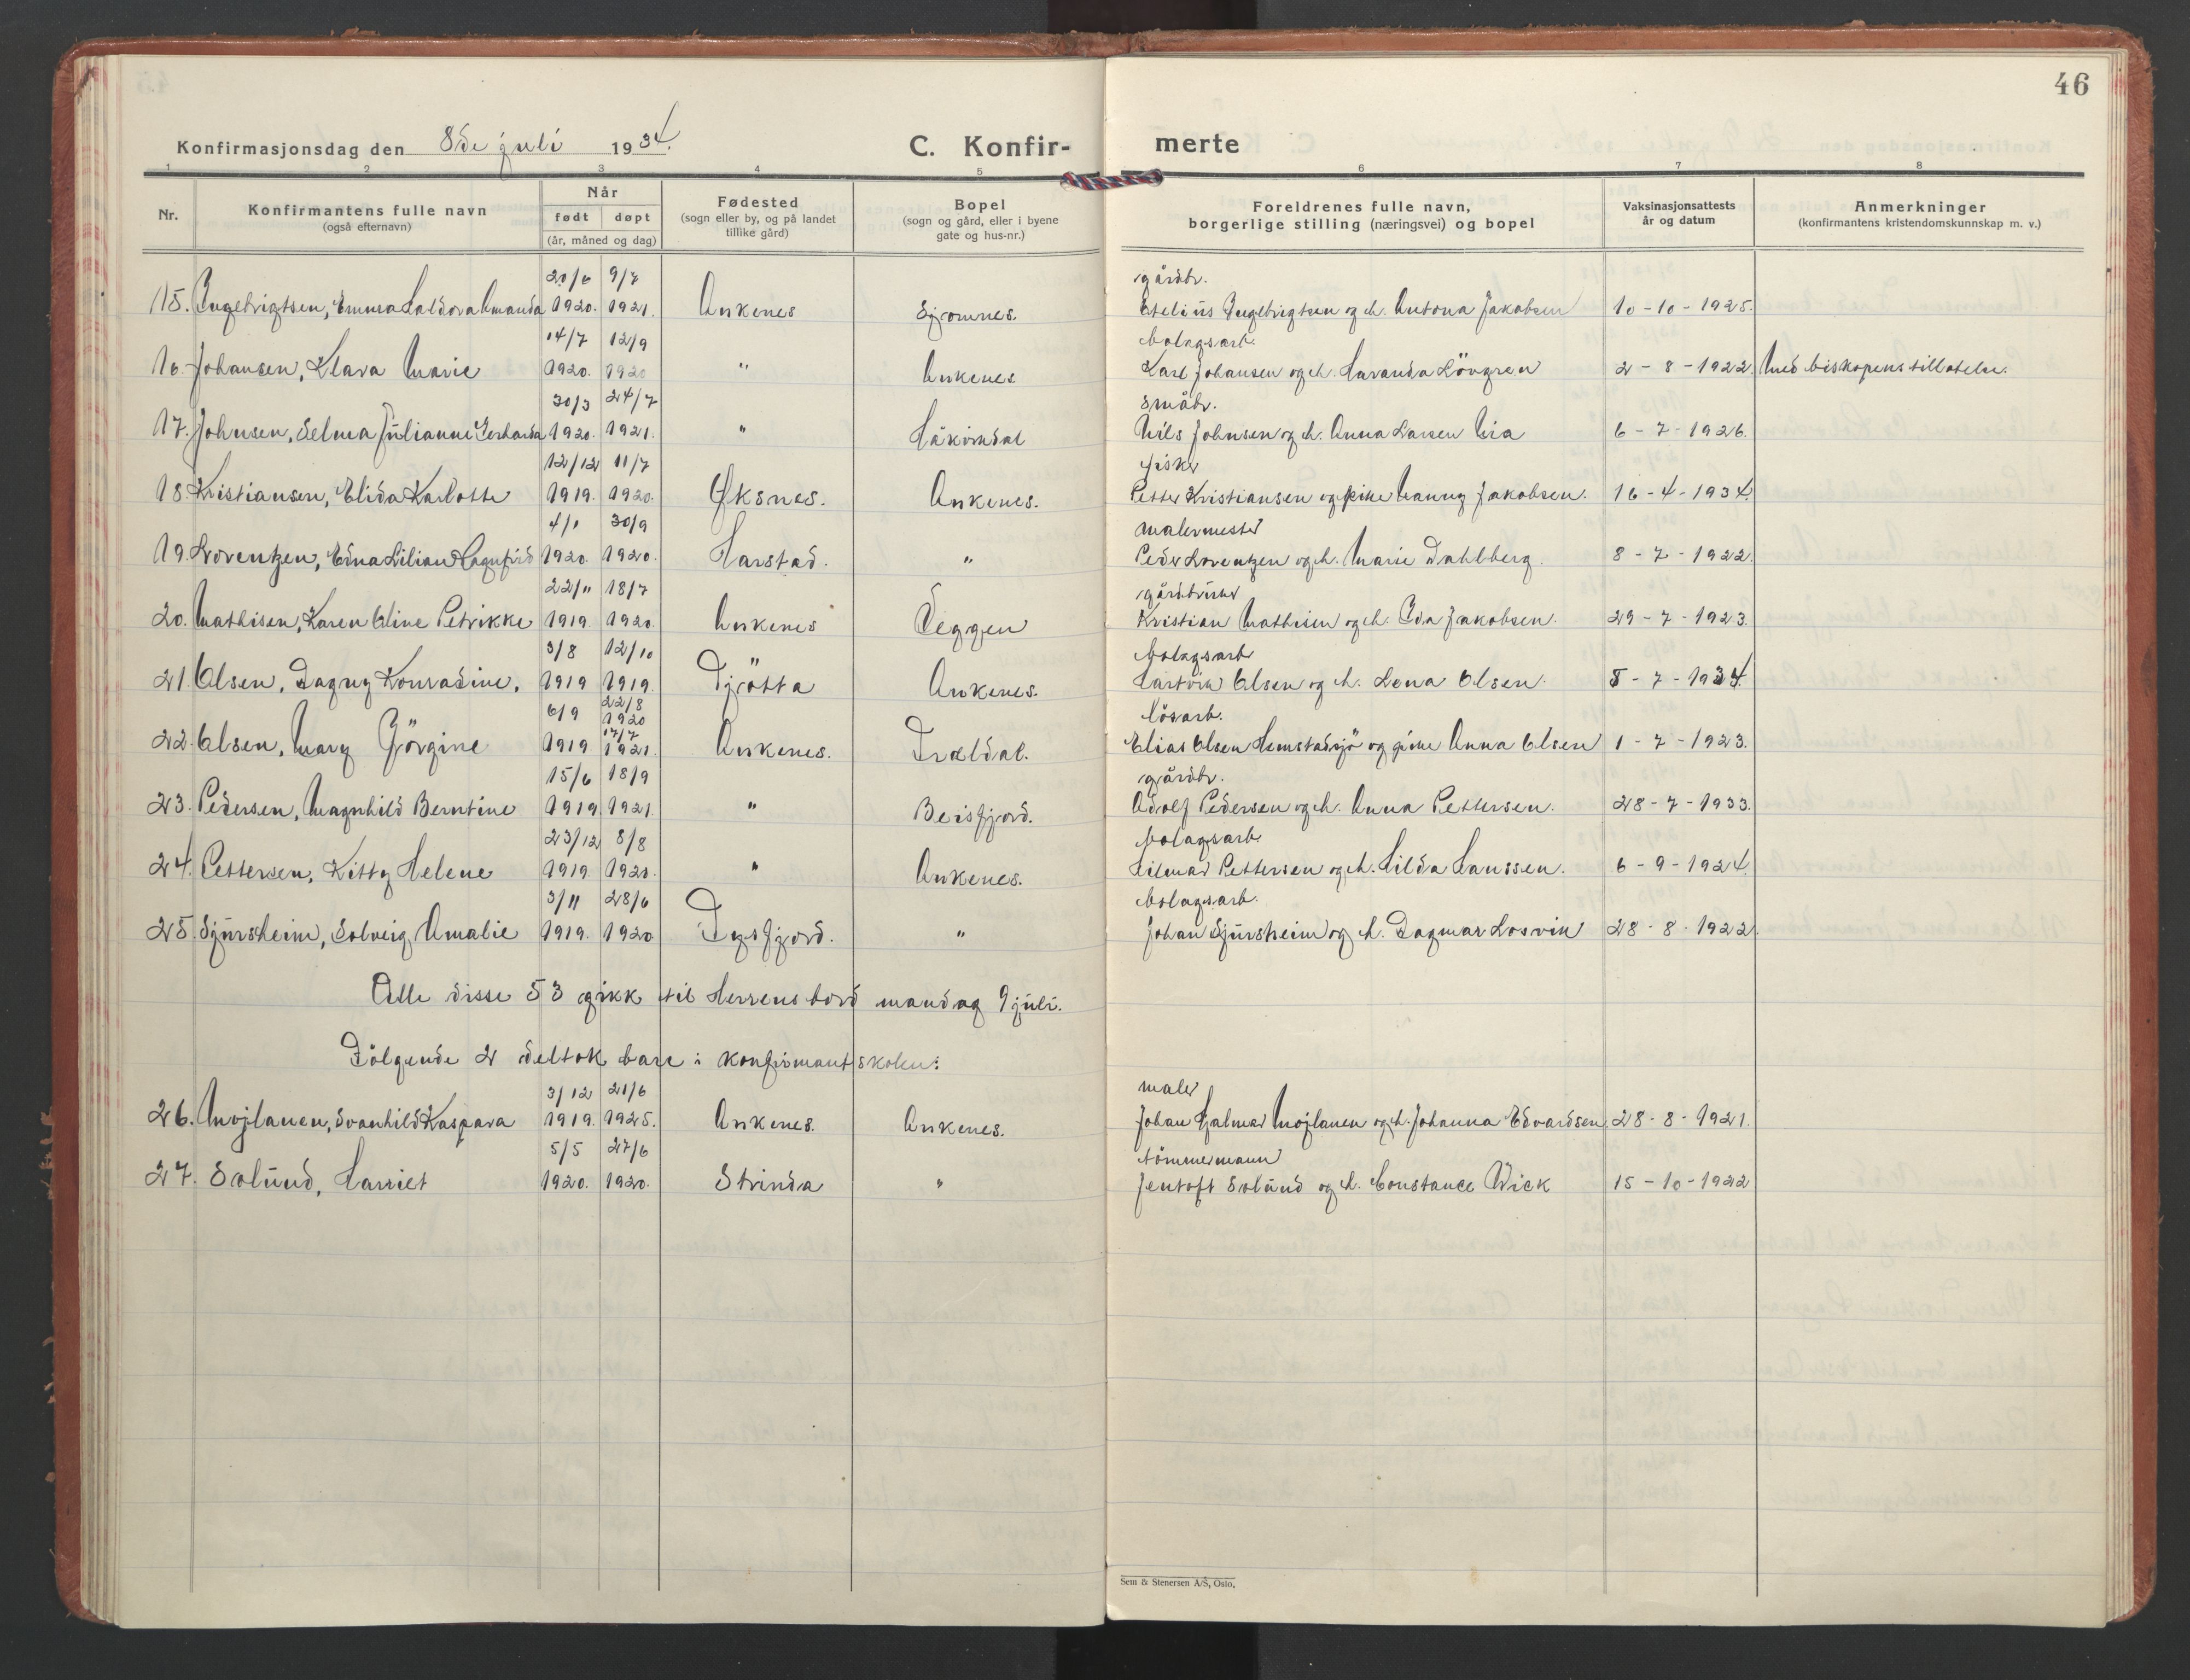 46
Konfirmasjonsdag den 8de juli 1934.
C. Konfir- merte
1 2 3 4 5 6 7 8
Nr.
Konfirmantens fulle navn
(også efternavn)
Når
født døpt
(år, måned og dag)
Fødested
(sogn eller by, og på landet
tillike gård)
Bopel
(sogn og gård, eller i byene
gate og hus-nr.)
Foreldrenes fulle navn,
borgerlige stilling (næringsvei) og bopel
Vaksinasjonsattests
år og datum
Anmerkninger
(konfirmantens kristendomskunnskap m. v.)
20/6 9/7 gårdbr.
15. Ingebrigtsen, Emma Haldora Amanda 1920. 1921. Ankenes Sjomnes. Etelius Ingebrigtsen og h. Antona Jakobsen 10-10-1925.
14/7 12/9 bolagsarb.
16. Johansen, Klara Marie 1920. 1920 " Ankenes Karl Johansen og h. Lövgren 2-8-1922. Med biskopens tillatelse.
30/3 24/7 småbr.
17. Johnsen, Selma Julianne Gerharda 1920. 1921. " Håkvikdal Nils Johnsen og h. Anna Larsen Mia 6-7-1926.
12/12 11/7 fisker
18. Kristiansen, Elida Karlotte 1919. 1920. Øksnes. Ankenes. Petter Kristiansen og pike Nanny Jakobsen. 16-4-1934.
4/1 30/9 malermester
19. Lorentzen, Edna Lilian Ragnfrid 1920. 1920. Harstad. " Peder Lorentzen og h. Marie Dahlberg. 8-7-1922.
22/11 18/7 gårdbruker
20. Mathisen, Karen Oline Petrikke 1919. 1920. Ankenes Seggen Kristian Mathisen og h. Ida Jakobsen. 29-7-1923.
3/8 12/10 bolagsarb
21. Olsen, Dagny Konradine, 1919 1919. Tjötta Ankenes. Hartvik Olsen og h. Lena Olsen. 5-7-1934.
6/9 22/8 1920 lösarb.
22. Olsen, Mary Görgine 1919. 17/7 1921. Ankenes. Fraldal. Elias Olsen Hemstadsjö og pike Anna Olsen 1-7-1923.
15/6 18/9 gårdbr.
23. Pedersen, Magnhild Berntine 1919 1921. " Beisfjord. Adolf Pedersen og h. Anna Pettersen. 28-7-1933.
23/12 8/8 bolagsarb.
24. Pettersen, Kitty Helene 1919. 1920. " Ankenes. Hilmar Pettersen og h. Hilda Hanssen. 6-9-1924.
3/11 28/6 bolagsarb.
25. Sjursheim, Solveig Amalie 1919. 1920 Tysfjord. " Johan Sjursheim og h. Dagmar Losvik 28-8-1922.
Alle disse 53 gikk til Herrens bord mandag 9 juli.
Fölgende 2 deltok bare i konfirmantskolen:
3/12 21/6 maler
26. Mojlanen, Svanhild Kaspara 1919. 1925. Ankenes. Ankenes. Johan Hjalmar Mojlanen og h. Johanna Edvardsen. 28-8-1921.
5/5 27/6 tömmermann
27. Solund, Harriet 1920. 1920. Strinda " Jentoft Solund og h. Constance Wick 15-10-1922
Sem & Stenersen A/S, Oslo.